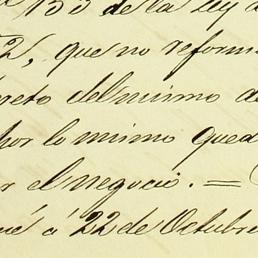 de la ley
2, que no reform
del mismo de
por lo mismo qued
r el negocio. =
á 22 de Octubre